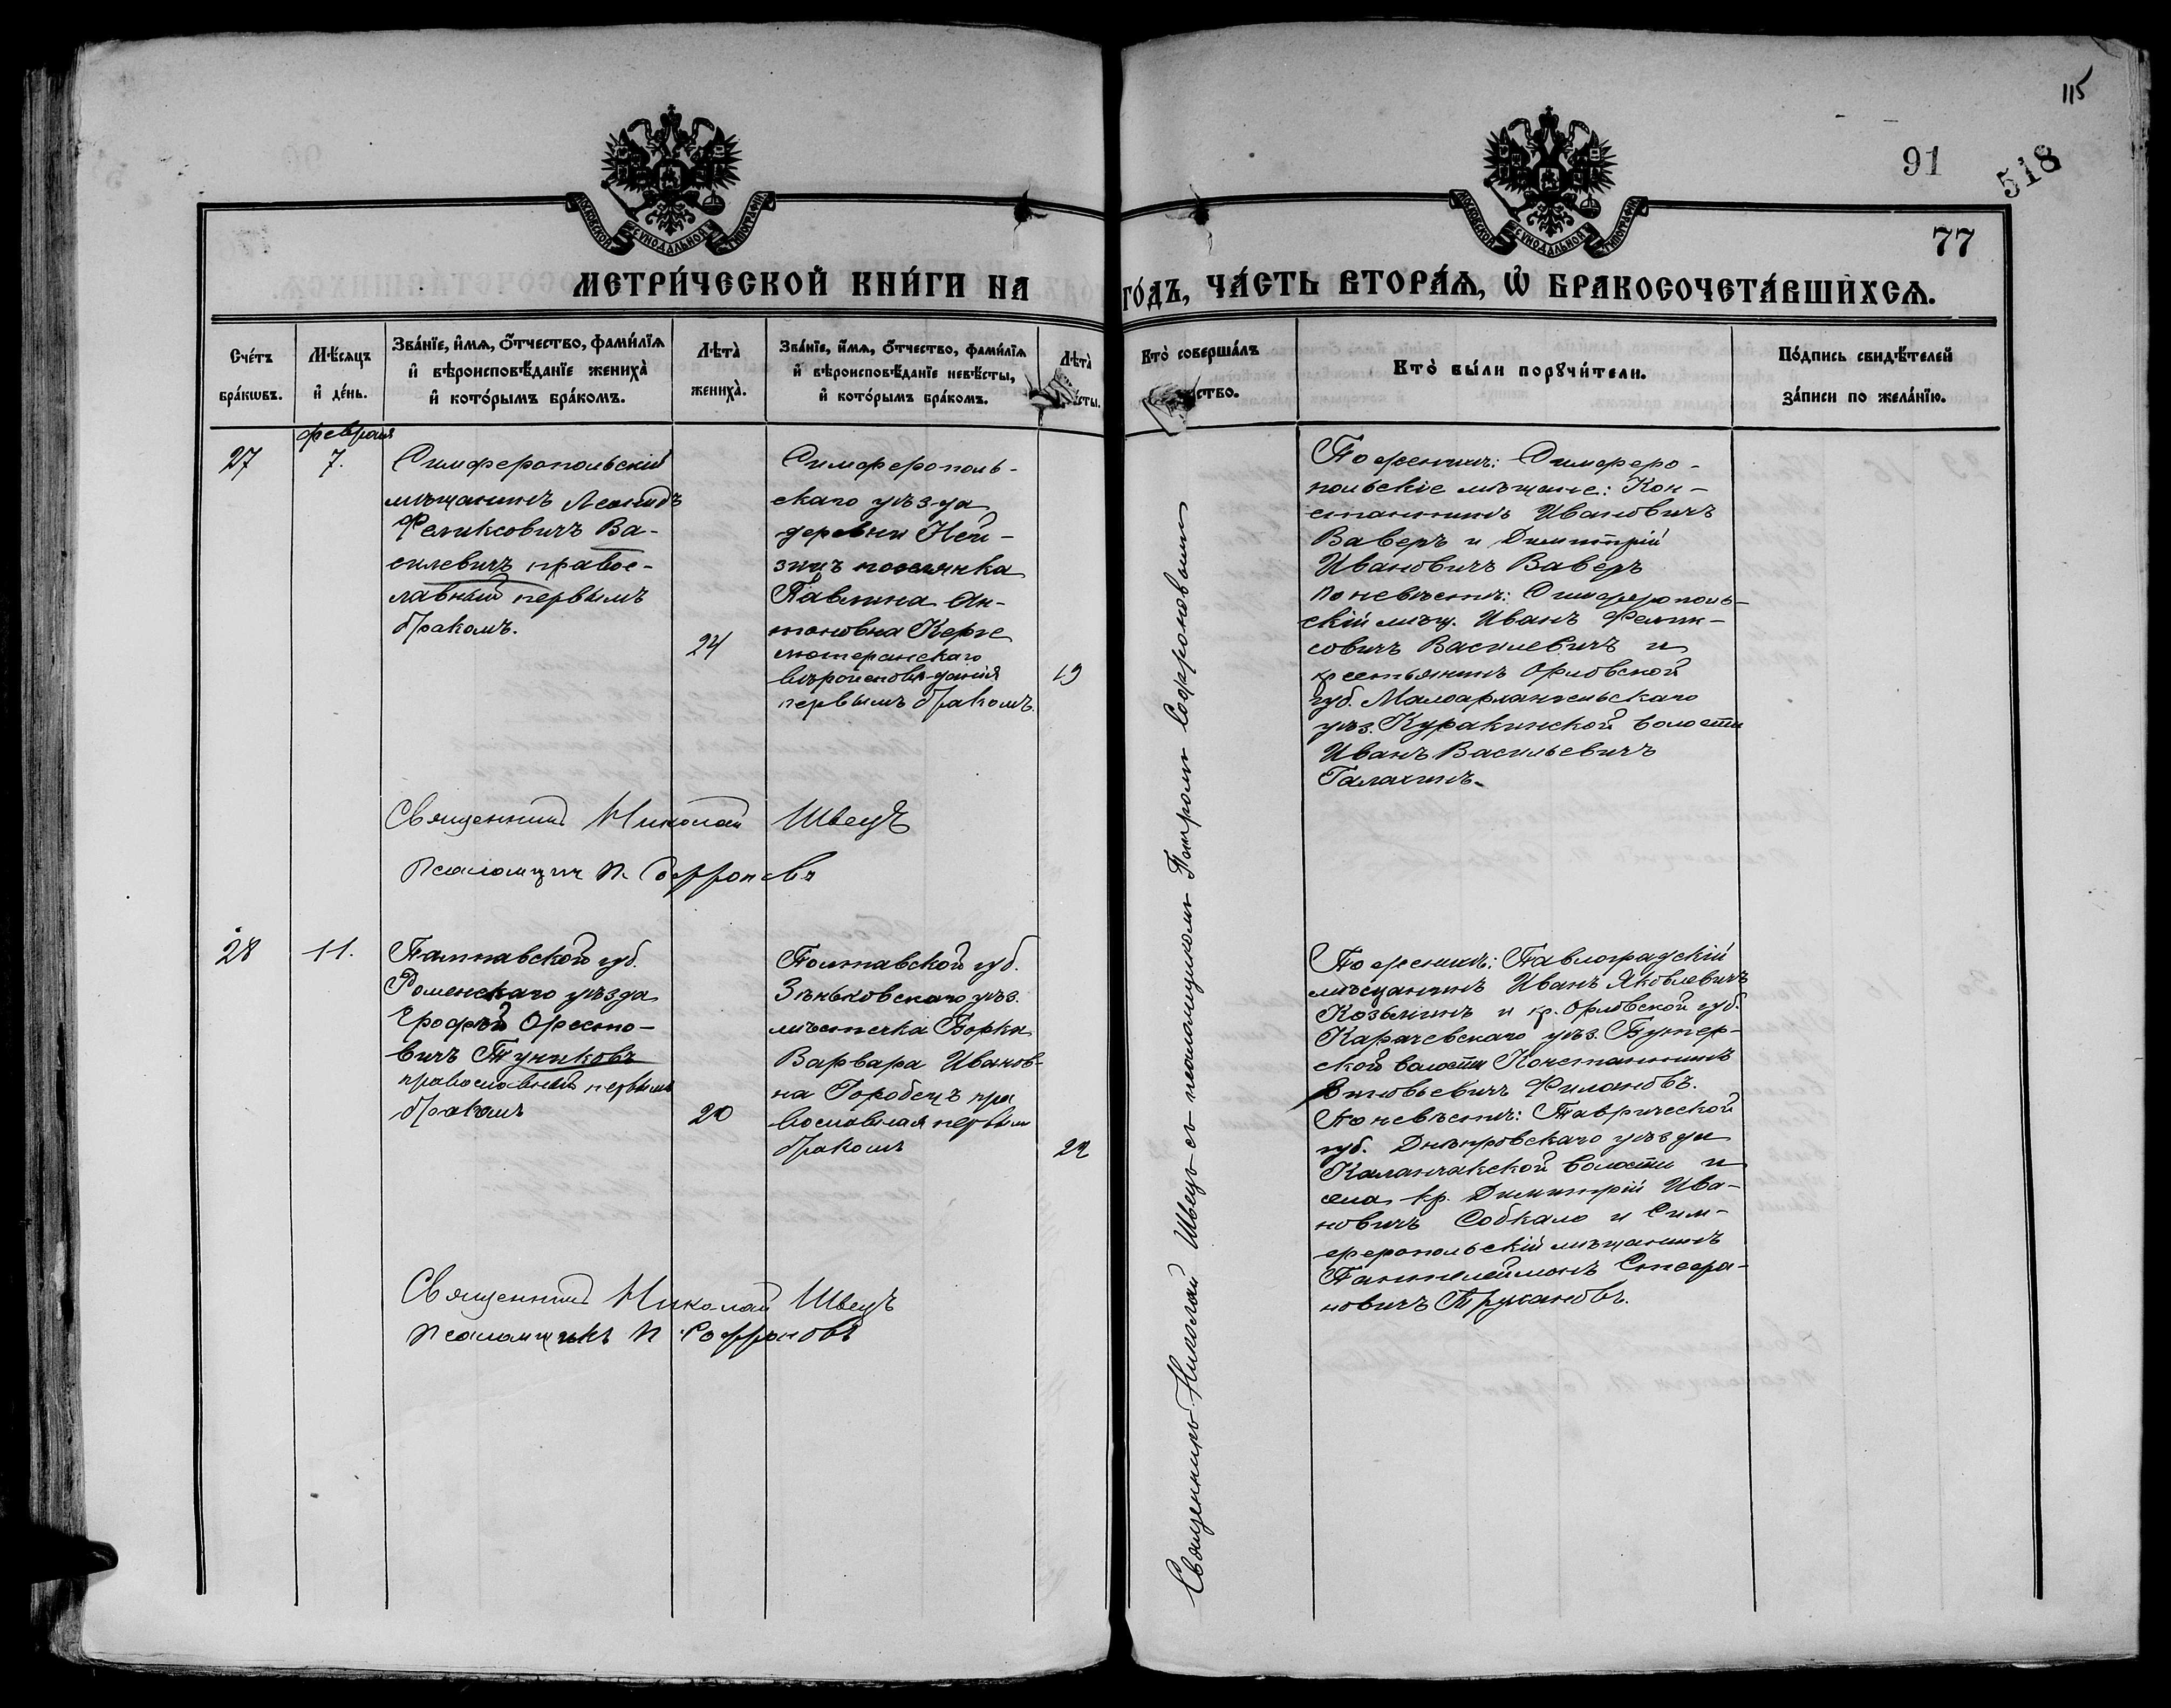 115
91
518
77
МОСКОВСКОЙ СѴНОДАЛЬНОЙ ТИПОГРАФІИ
МОСКОВСКОЙ СѴНОДАЛЬНОЙ ТИПОГРАФІИ
МЕТРИ́ЧЕСКОЙ КНИ́ГИ НА
ГО́ДЪ, ЧА́СТЬ ВТОРА́Ѧ, Ѡ БРАКОСОЧЕТА́ВШИХСѦ.
Сче́тъ бра́кѡвъ.
Мѣ́сѧцъ и де́нь.
Зва́нїе, и́мѧ, о́тчество, фами́лїѧ
и вѣроисповѣ́данїе жениха̀
и кото́рымъ бра́комъ.
Лѣта̀ жениха̀.
Зва́нїе, и́мѧ, о́тчество, фами́лїѧ
и вѣроисповѣ́данїе невѣ́сты,
и кото́рымъ бра́комъ.
Лѣта̀
сты.
Кто̀ соверша́лъ
ство.
Кто̀ бы́ли порꙋчи́тели.
По́дпись свидѣ́телей
за́писи по жела́нїю.
27
февраля
7.
Симферопольскій
мѣщанинъ Леонидъ
Феликсовичъ Ва-
силевичъ правос-
лавный первымъ
бракомъ.
24
Симферополь-
скаго уѣзда
деревни Ней-
зацъ поселянка
Павлина Ан-
тоновна Керге
лютеранскаго
вѣроисповѣданія
первымъ бракомъ.
19
По женихѣ: Симферо-
польскіе мѣщане: Кон-
стантинъ Ивановичъ
Ваверъ и Димитрій
Ивановичъ Ваверъ
по невѣстѣ: Симферополь-
скій мѣщ. Иванъ Феликсовичъ
совичъ Василевичъ и
крестьянинъ Орловской
губ. Малоархангельскаго
уѣз. Куракинской волости
Иванъ Васильевичъ
Галахинъ.
Священникъ Николай Швецъ
Псаломщикъ П. Софроновъ
28
11.
Полтавской губ.
Роменскаго уѣзда
Ерофей Оресто-
вичъ Туниковъ
православный первымъ
бракомъ
20
Полтавской губ.
Зѣньковскаго уѣз.
мѣстечка Борки
Варвара Иванов-
на Горобецъ пра
вославная первым
бракомъ
22
По женихѣ: Павлоградскій
мѣщанинъ Иванъ Яковлевичъ
Козьминъ и кр. Орловской губ.
Карачевскаго уѣз. Бутер-
ской волости Константинъ
Филановъ.
По невѣстѣ: Таврической
губ. Днѣпровскаго уѣзда
Каланчакской волости и
села кр. Димитрій Ива-
новичъ Собкало и Сим-
феропольскій мѣщанинъ
Пантелеймонъ Стефа-
новичъ Трухановъ.
Священникъ Николай Швецъ
Псаломщикъ П. Софроновъ
Священникъ Николай Швецъ съ псаломщикомъ Петромъ Софроновымъ